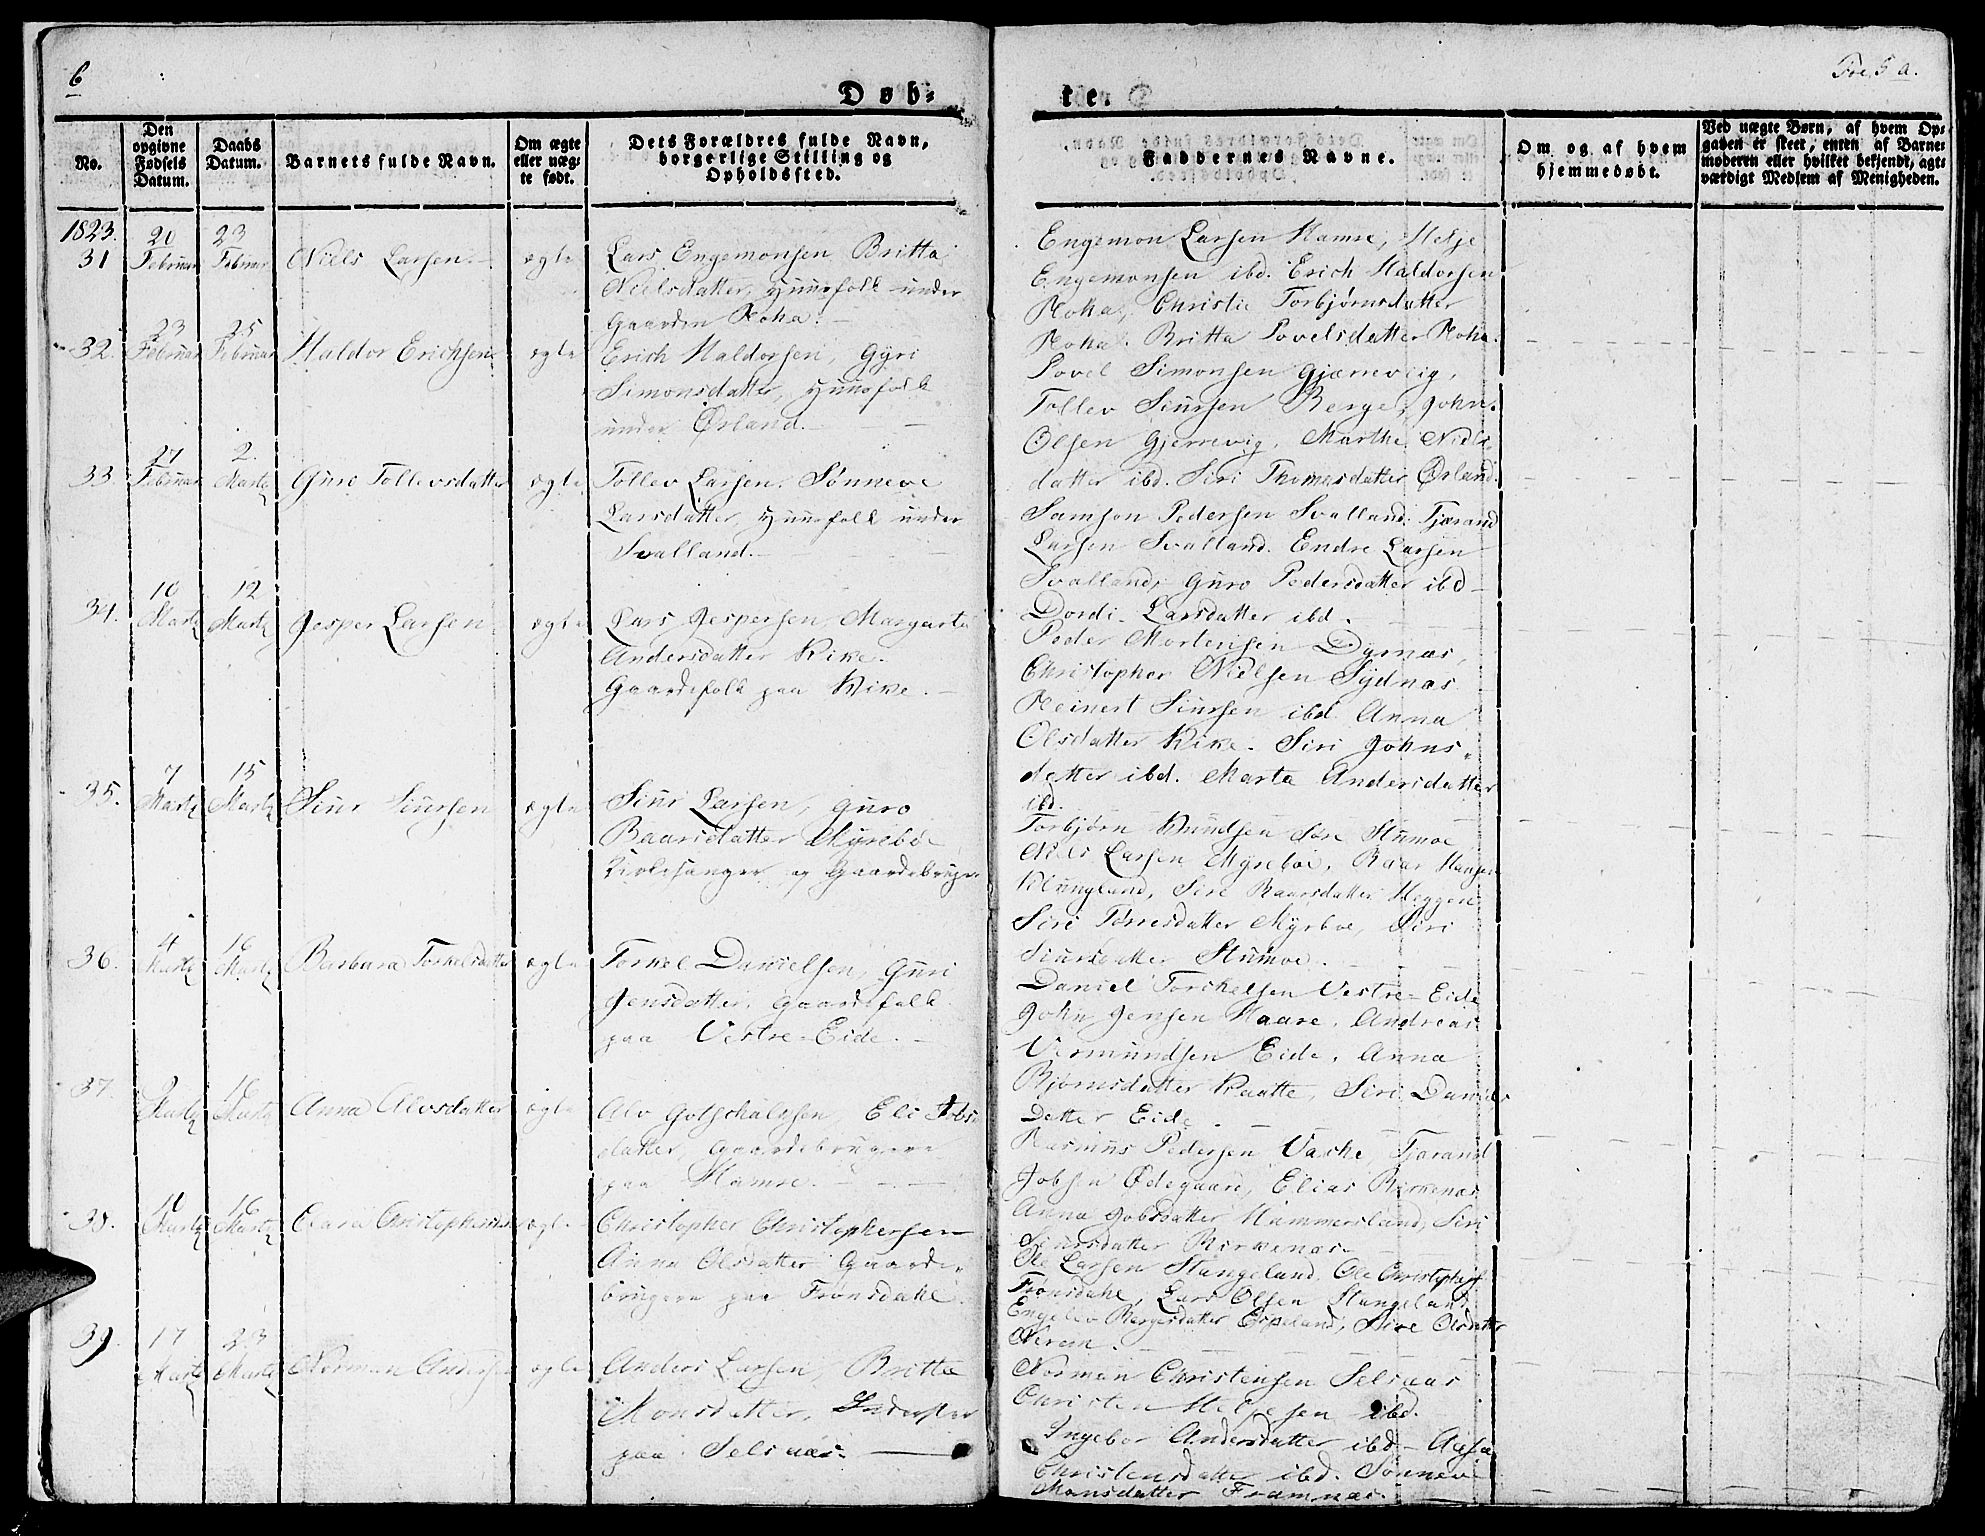 6
Døb-
te.
Foe, 5 a.
No.
Den opgivne Fødsels Datum.
Daabs Datum.
Barnets fulde Navn.
Om ægte eller uægte født.
Dets Forældres fulde Navn, borgerlige Stilling og Opholdssted.
Faddernes Navne.
Om og af hvem hjemmedøbt.
Ved uægte Børn, af hvem Opgaven er skeet, enten af Barnemoderen eller hvilket bekjendt, agtværdigt Medlem af Menigheden.
1823.
31 20 Februar 23 Februar Niels Larsen. ægte
Lars Engemonsen, Britta
Nielsdatter, Huusfolk under
Gaarden Roha.
Engemon Larsen Hamre, Helje
Engemonsen ibd. Erich Haldorsen
Roha, Christie Torbjørnsdatter
Roha. Britta Povelsdatter Roha.
32. 23 Februar 25 Februar Haldor Erichsen ægte
Erich Haldorsen, Gyri
Simonsdatter, Huusfolk
under Ørland.
Povel Simonsen Gjærrevig,
Tollev Siursen Berge, John
Olsen Gjerrevig, Marthe Niels
datter ibd. Siri Thomasdatter Ørland.
33. 27 Februar 2. Martz Guro Tollevsdatter ægte
Tollev Larsen, Sønneve
Larsdatter, Huusfolk under
Svalland.
Samson Pedersen Svalland. Tjærand
Larsen Svalland. Endre Larsen
Svalland, Guro Pedersdatter ibd
Dordi Larsdatter ibd.
34. 10 Martz 12 Martz Jesper Larsen ægte
Lars Jespersen, Margarta
Andersdatter Kike.
Gaardefolk paa Kike.
Peder Mortensen Dyrnæs,
Christopher Nielsen Sydnæs
Reinert Siursen ibd. Anna
Olsdatter Kike. Siri Johns-
datter ibd. Marta Andersdatter
ibd.
35. 7 Martz 15 Martz Siur Siursen ægte
Siur Larsen, Guro
Baarsdatter Myreboe
Kirkesanger og Gaardebruger
Torbjørn Knudsen Søre Stumoe
Niels Larsen Myreboe, Baar Hansen
Klungland, Siri Baarsdatter Heggen
Siri Tørresdatter Myrboe, Siri
Siursdatter Stumoe.
36. 4 Martz 16 Martz Barbara Torkelsdatter ægte
Torkel Danielsen, Guri
Jensdatter, Gaardefolk
paa Vestre-Eide.
Daniel Torchelsen Vestre-Eide
John Jensen Haare, Andreas
Vermundsen Eide, Anna
Bjørnsdatter Kaatte, Siri Daniels
datter Eide.
37. 9 Martz 16 Martz Anna Alvsdatter ægte
Alv Gotschalksen, Eli Jobs
datter, Gaardebrugere
paa Hamre.
Rasmus Pedersen Vashe, Tjærand
Jobsen Ødegaard, Elias Birkenæs
Anna Jobsdatter Hammersland, Siri
Siursdatter Birkenæs.
38. 11 Martz 16 Martz ægte
Christopher Christophersen
Anna Olsdatter Gaarde-
brugere paa Frønsdahl.
Ole Larsen Stangeland, Ole Christophers
Frønsdahl, Lars Olsen Stangeland
Engelev Bergesdatter Espeland, Sive Olsdatter
39. 17 Martz 23 Martz Norman Andersen ægte
Anders Larsen, Britta
Monsdatter, Inderster
paa Selsaas.
Norman Christensen Selsaas
Christen Heljesen ibd.
Ingebor Andersdatter ibd-
Christensdatter ibd. Sønneve
Monsdatter Framnæs.